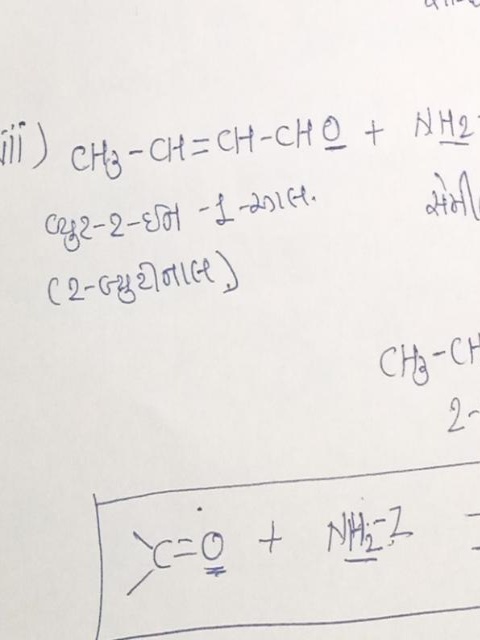 iii) CH3-CH=CH-CHO + NH2-
બ્યુટ-2-ઇન-1-આલ. સેમી
(2-બ્યુટીનાલ)
CH3-CH
2-
>C=O + NH2-Z